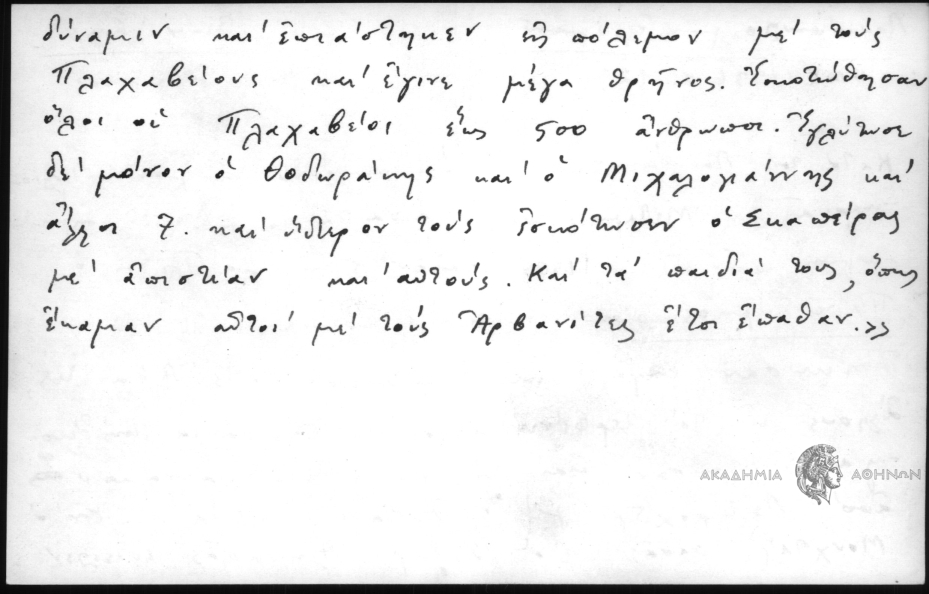 δύναμιν καὶ ἐπιάστηκεν εἰς πόλεμον μὲ τοὺς
Πλαχαβείους καὶ ἔγινε μέγα θρῆνος. Ἐσκοτώθησαν
ὅλοι οἱ Πλαχαβεῖοι ἕως 500 ἄνθρωποι. Ἐγλύτωσε
δὲ μόνον ὁ Θοδωράκης καὶ ὁ Μιχαλογιάννης καὶ
ἄλλοι 7. καὶ ὕστερον τοὺς ἐσκότωσεν ὁ Σκαπέρας
μὲ ἀπιστίαν καὶ αὐτούς. Καὶ τὰ παιδιά τους, ὅπως
ἔκαμαν αὐτοὶ μὲ τοὺς Ἀρβανίτες ἔτσι ἔπαθαν.»
ΑΚΑΔΗΜΙΑ ΑΘΗΝΩΝ